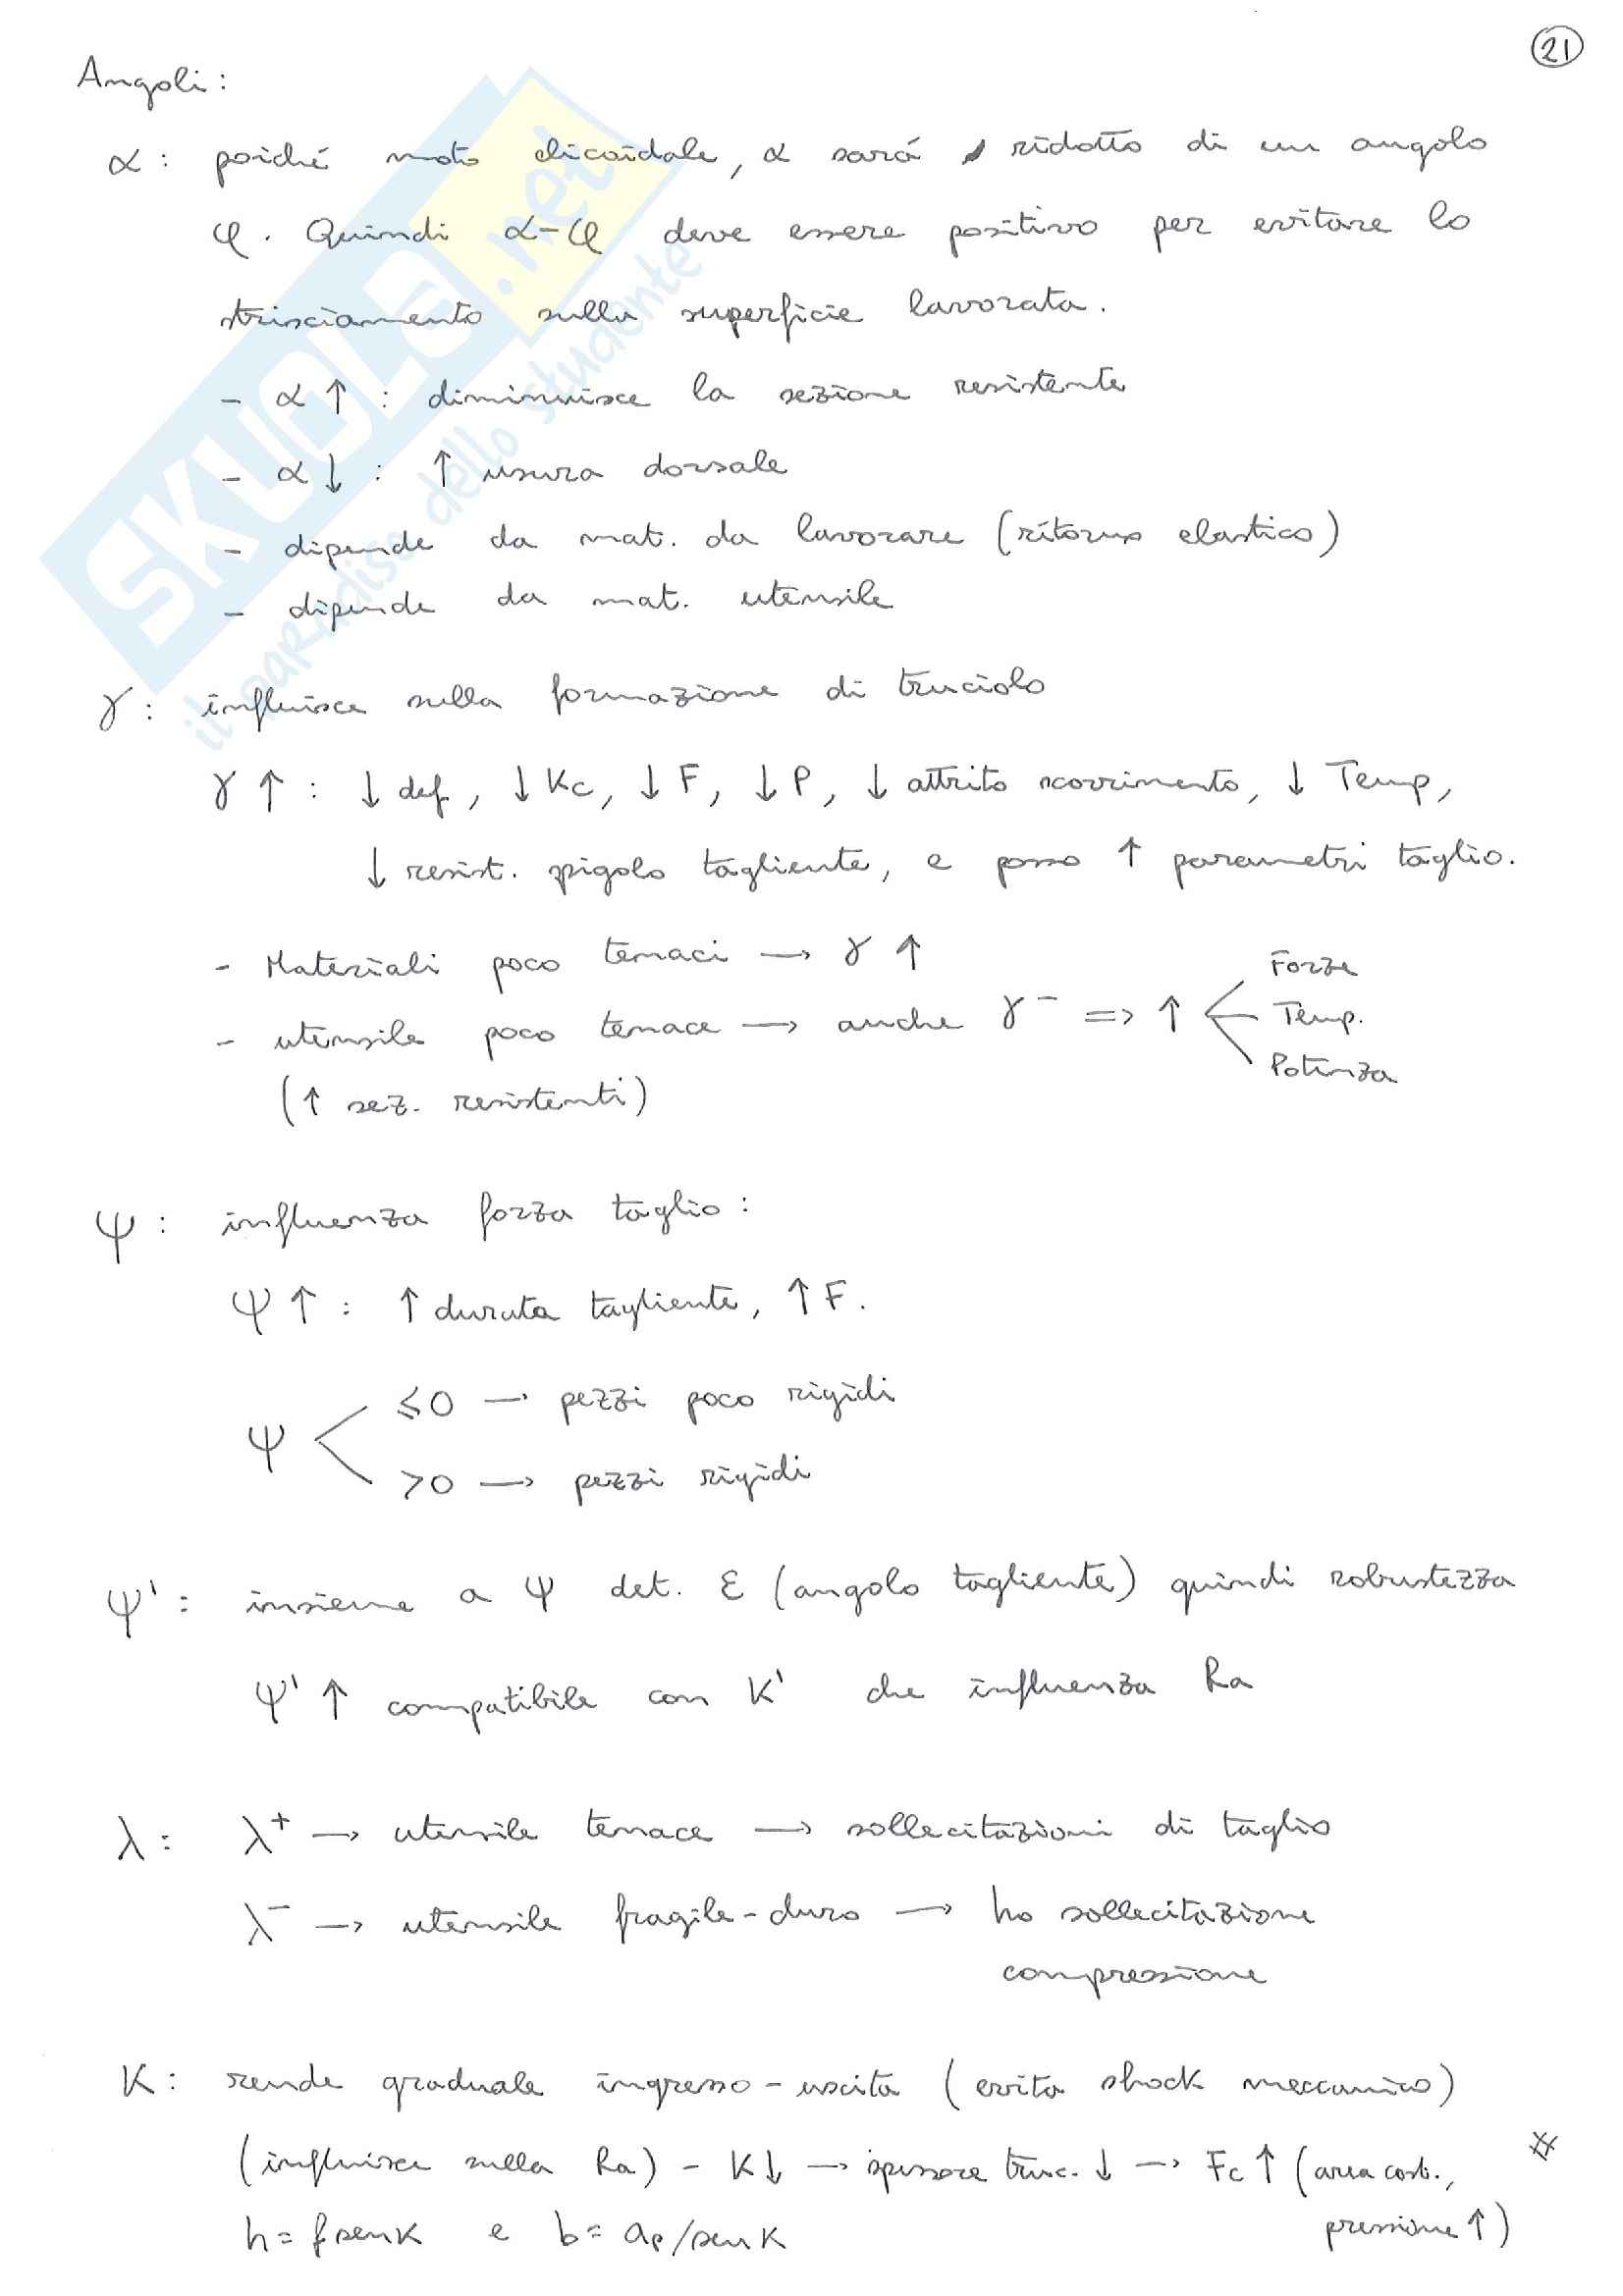 21
Angoli:
α: poiché moto elicoidale, α sará ridotto di un angolo
φ. Quindi α-φ deve essere positivo per evitare lo
strisciamento sulla superficie lavorata.
- α ↑ : diminuisce la sezione resistente
- α ↓ : ↑ usura dorsale
- dipende da mat. da lavorare (ritorno elastico)
- dipende da mat. utensile
γ: influisce sulla formazione di truciolo
γ ↑ : ↓ def, ↓ Kc, ↓ F, ↓ P, ↓ attrito scorrimento, ↓ Temp,
↓ resist. spigolo tagliente, e posso ↑ parametri taglio.
- Materiali poco tenaci → γ ↑
- utensile poco tenace → anche γ⁻ => ↑ < Forze
Temp.
Potenza
(↑ sez. resistenti)
ψ: influenza forza taglio:
ψ ↑ : ↑ durata tagliente, ↑ F.
ψ < ≤0 → pezzi poco rigidi
>0 → pezzi rigidi
ψ': insieme a ψ det. ε (angolo tagliente) quindi robustezza
ψ' ↑ compatibile con K' che influenza Ra
λ: λ⁺ → utensile tenace → sollecitazioni di taglio
λ⁻ → utensile fragile-duro → ho sollecitazione
compressione
K: rende graduale ingresso-uscita (evita shock meccanico)
(influisce sulla Ra) - K↓ → spessore truc. ↓ → Fc ↑ (area cost., #
h= f senK e b= ap/senK pressione ↑)
SKUOLA.net
il paradiso dello studente